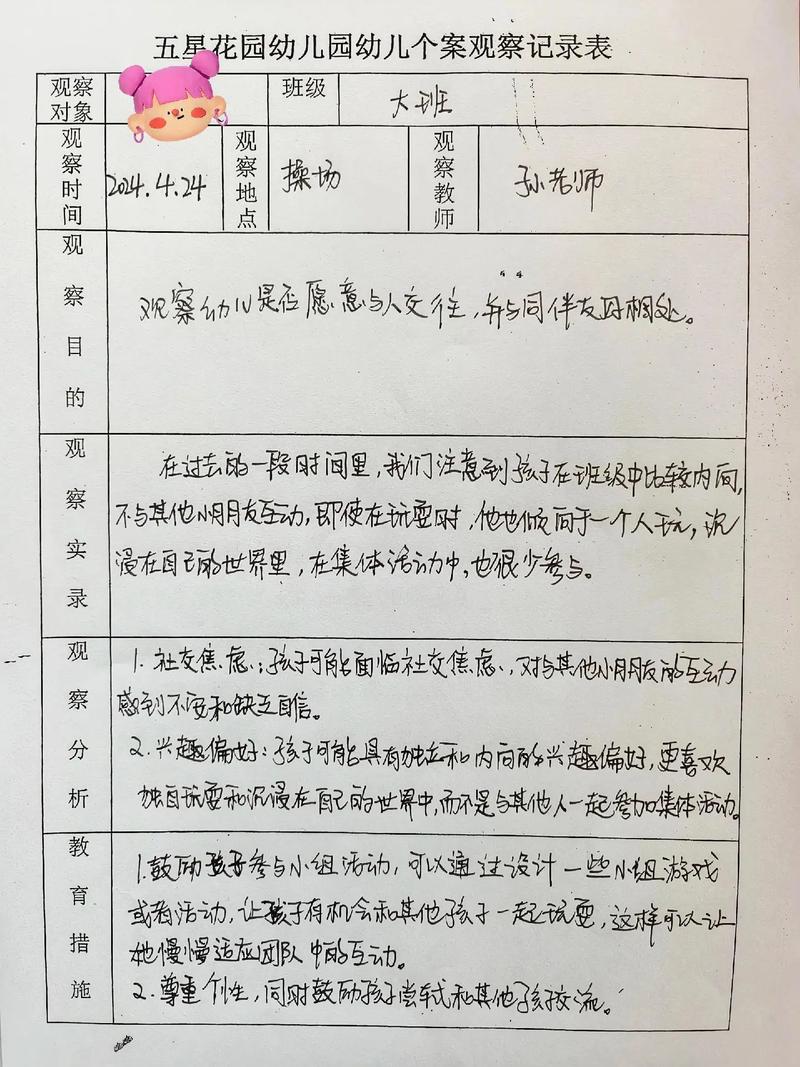 五星花园幼儿园幼儿个案观察记录表
观察对象 班级 大班
观察时间 2024.4.24 观察地点 操场 观察教师 孙老师
观察目的
观察幼儿是否愿意与人交往，并与同伴友好相处。
观察实录
在过去的一段时间里，我们注意到孩子在班级中比较内向，
不与其他小朋友互动，即使在玩耍时，他也倾向于一个人玩，沉
浸在自己的世界里，在集体活动中，也很少参与。
观察分析
1. 社交焦虑：孩子可能面临社交焦虑，对与其他小朋友的互动
感到不安和缺乏自信。
2. 兴趣偏好：孩子可能具有独立和内向的兴趣偏好，更喜欢
独自玩耍和沉浸在自己的世界中，而不是与其他人一起参加集体活动。
教育措施
1.鼓励孩子参与小组活动，可以通过设计一些小组游戏
或者活动，让孩子有机会和其他孩子一起玩耍，这样可以让
她慢慢适应团队中的互动。
2. 尊重个性，同时鼓励孩子尝试和其他孩子交流。